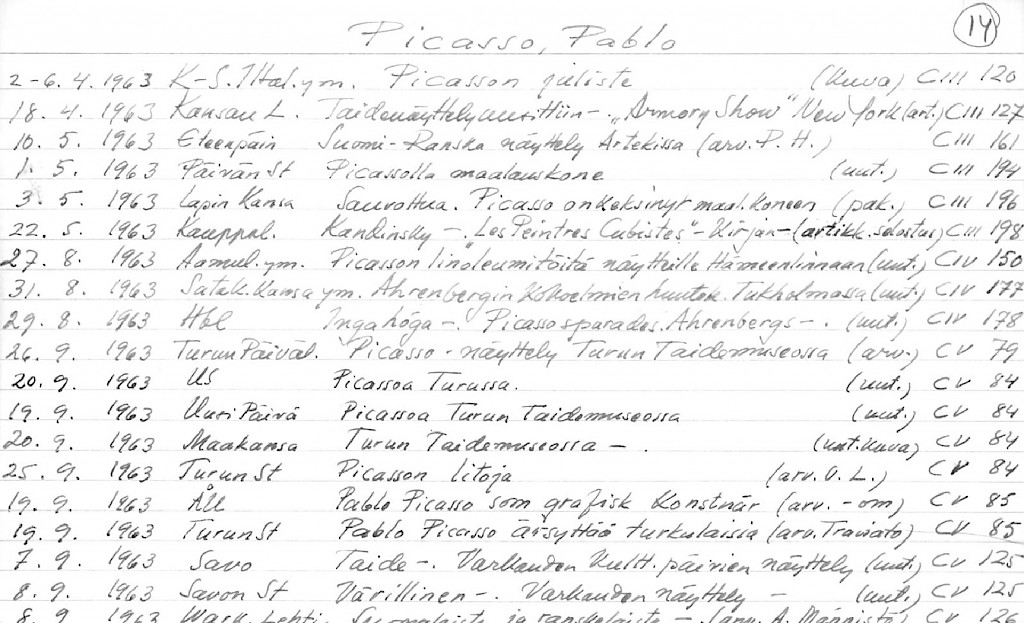 14
Picasso, Pablo
2-6.4.1963 K-S. Ital. ym. Picasson juliste (kuva) CIII 120
18.4.1963 Kansan L. Taidenäyttelyuurittiin-. "Armory Show" New York (art.) CIII 127
10.5.1963 Eteenpäin Suomi-Ranska näyttely Artekissa (arv. P.H.) CIII 161
1.5.1963 Päivän St Picassolla maalauskone (uut.) CIII 194
3.5.1963 Lapin Kansa Sauvottua. Picasso on keksinyt maal. koneen (pak.) CIII 196
22.5.1963 Kauppal. Kandinsky -. "Les Peintres Cubistes" - kirjan - (artikk. selostus) CIII 198
27.8.1963 Aamul. ym. Picasson linoleumitöitä näytteille Hämeenlinnaan (uut.) CIV 150
31.8.1963 Satak. Kansa ym. Ahrenbergin kokoelmien huutok. Tukholmassa (uut.) CIV 177
29.8.1963 Hbl Inga höga -. Picassos parades. Ahrenbergs -. (uut.) CIV 178
26.9.1963 Turun Päiväl. Picasso-näyttely Turun Taidemuseossa (arv.) CV 79
20.9.1963 US Picassoa Turussa. (uut.) CV 84
19.9.1963 Uusi Päivä Picassoa Turun Taidemuseossa (uut.) CV 84
20.9.1963 Maakansa Turun Taidemuseossa -. (uut. kuva) CV 84
25.9.1963 Turun St Picasson litoja (arv. O.L.) CV 84
19.9.1963 ÅU Pablo Picasso som grafisk konstnär (arv. -om) CV 85
19.9.1963 Turun St Pablo Picasso ärsyttää turkulaisia (arv. Traviato) CV 85
7.9.1963 Savo Taide -. Varkauden kultt. päivien näyttely (uut.) CV 125
8.9.1963 Savon St Värillinen -. Varkauden näyttely - (uut.) CV 125
8.9 1963 Wark. Lehti Suomalaista ja ranskalaista -. (arv. A. Männistö) CV 126